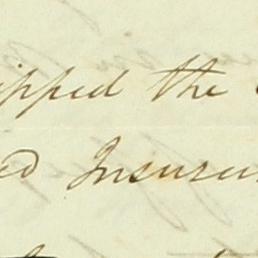 ipped the
ed Insuran